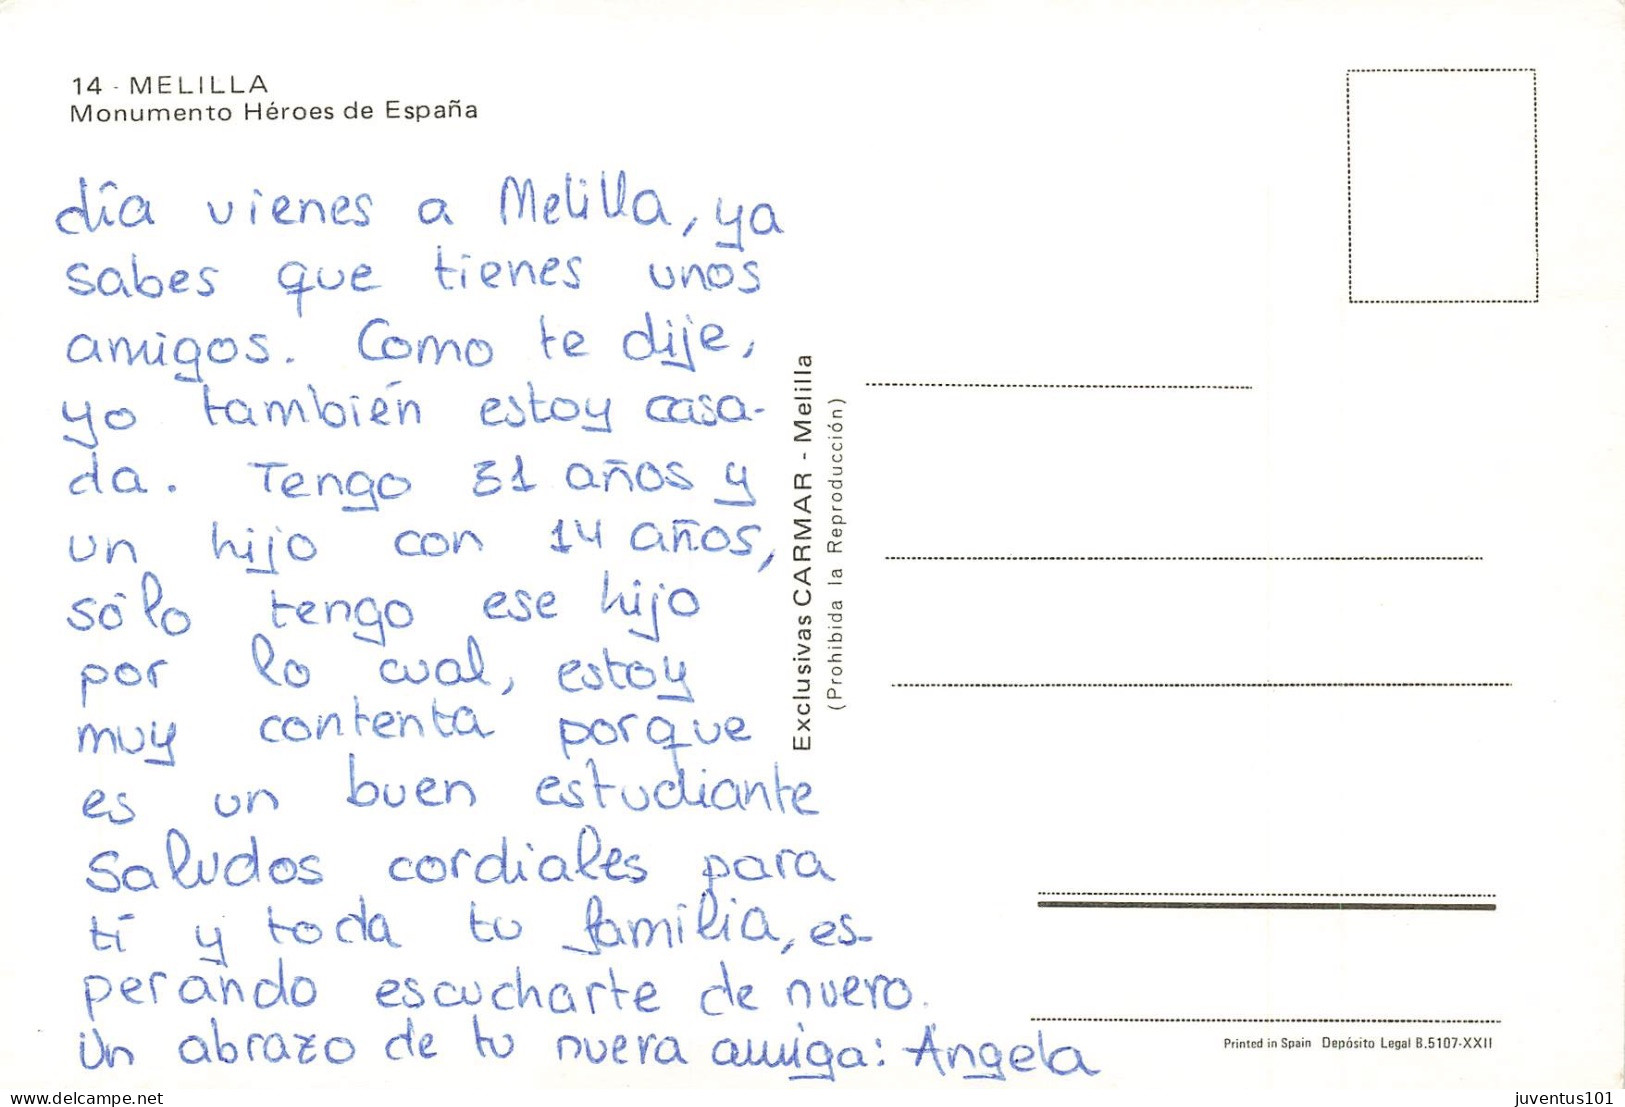 14 - MELILLA
Monumento Héroes de España
día vienes a Melilla, ya
sabes que tienes unos
amigos. Como te dije,
yo también estoy casa-
da. Tengo 31 años y
un hijo con 14 años,
sólo tengo ese hijo
por lo cual, estoy
muy contenta porque
es un buen estudiante
Saludos cordiales para
tí y toda tu familia, es-
perando escucharte de nuevo.
Un abrazo de tu nueva amiga: Angela
Exclusivas CARMAR - Melilla
(Prohibida la Reproducción)
Printed in Spain Depósito Legal B.5107-XXII
delcampe.net
juventus101